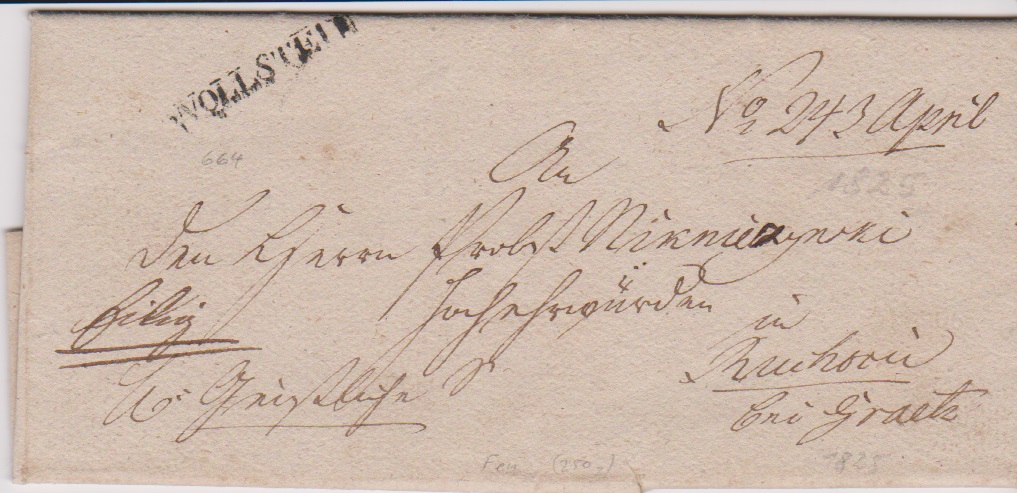 WOLLSTEIN
No 243 April
664
1825
An
den Herrn Probst
Hochehrwürden
Eilig
in
bei Graetz
Geistliche S.
1825
(250,-)